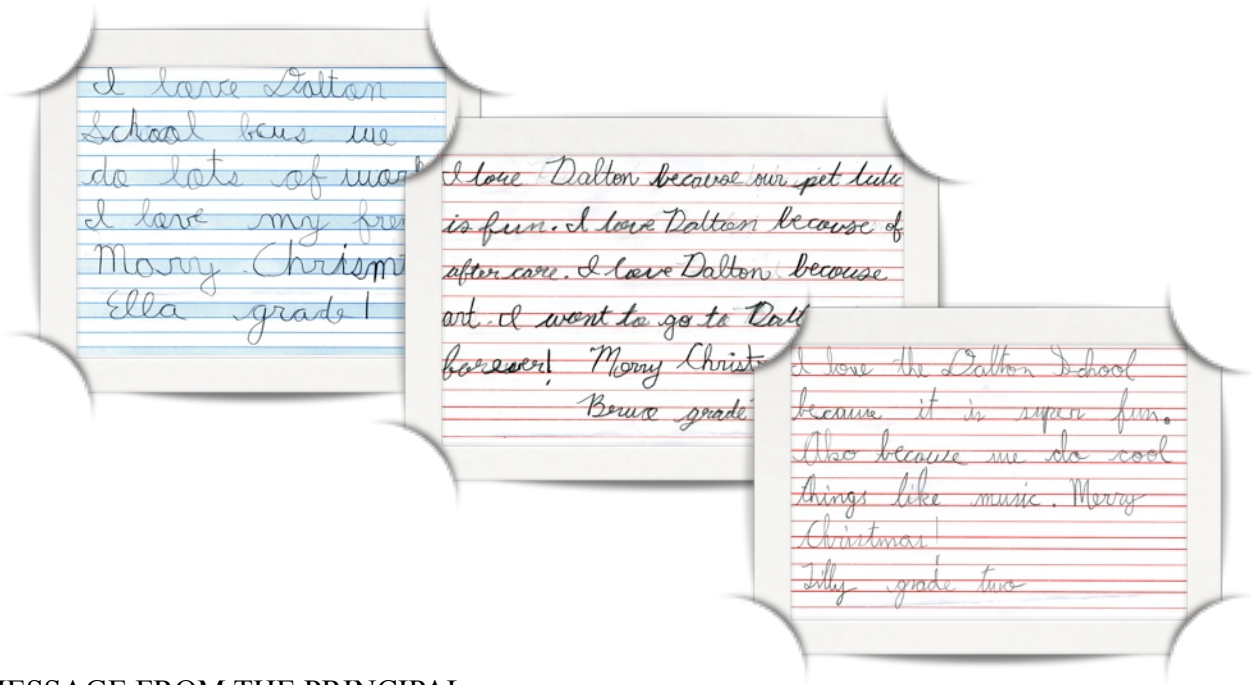 I love Dalton
School bcus we
do lots of work
I love my fre
Mary Chrism
Ella grade 1
I love Dalton because our pet lulu
is fun. I love Dalton because of
after care. I love Dalton because
art. I want to go to Dalt
forever! Merry Christ
grade
I love the Dalton School
because it is super fun.
Also because we do cool
things like music. Merry
Christmas!
Tilly grade two
MESSAGE FROM THE PRINCIPAL